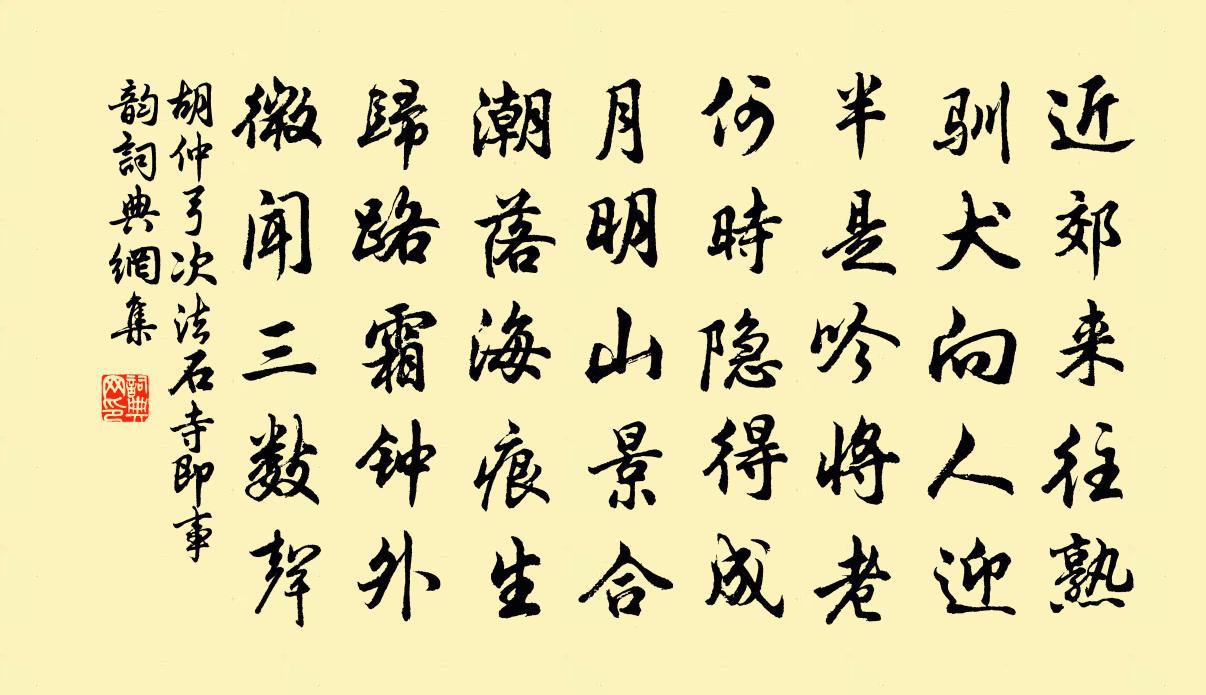 近郊来往熟
驯犬向人迎
半是吟将老
何時隐得成
月明山景合
潮落海痕生
歸路霜钟外
微闻三數聲
胡仲弓次法石寺即事
韵詞典網集
詞典
网印